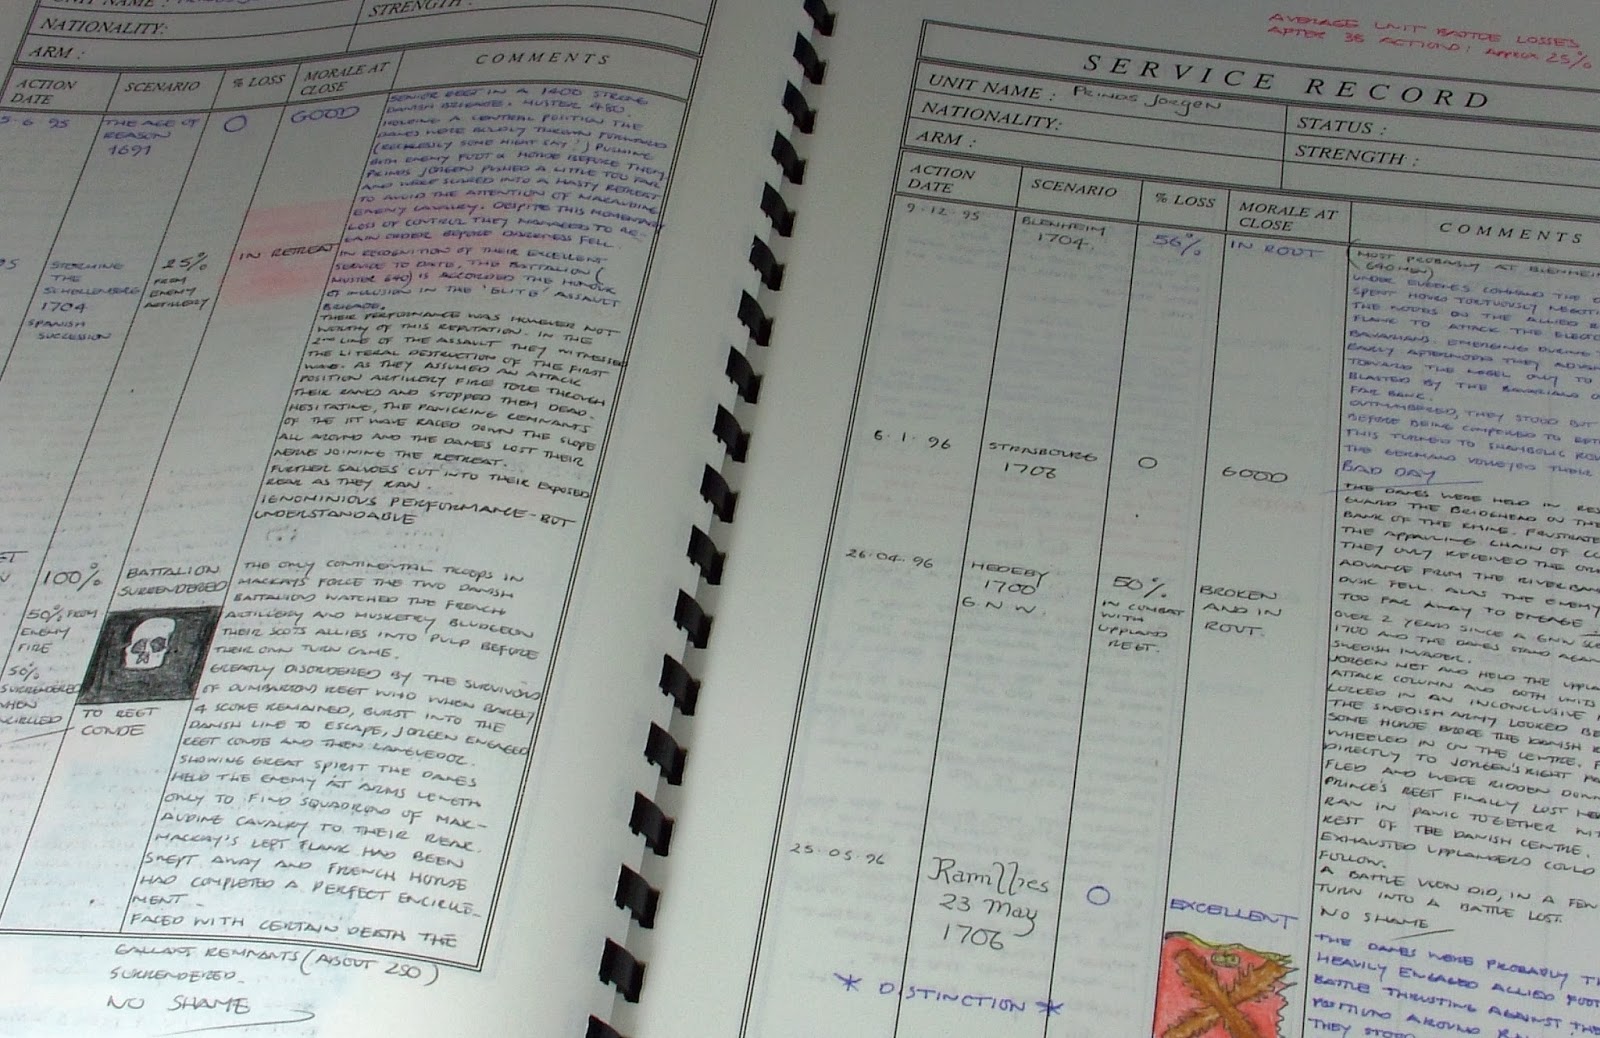 UNIT NAME :
STRENGTH :
NATIONALITY:
ARM :
ACTION DATE
SCENARIO
% LOSS
MORALE AT CLOSE
COMMENTS
5.6.95
THE AGE OF
REASON
1691
O
GOOD
SENIOR REGT IN A 1400 STRONG
DANISH BRIGADE. MUSTER 480.
HOLDING A CENTRAL POSITION THE
DANES WERE BOLDLY THROWN FORWARD
(RECKLESSLY SOME MIGHT SAY!) PUSHING
BOTH ENEMY FOOT & HORSE BEFORE THEM.
PRINDS JORGEN PUSHED A LITTLE TOO FAR
AND WERE SCARED INTO A HASTY RETREAT
TO AVOID THE ATTENTION OF MARAUDING
ENEMY CAVALRY. DESPITE THIS MOMENTARY
LOSS OF CONTROL THEY MANAGED TO RE-
GAIN ORDER BEFORE DARKNESS FELL.
95
STORMING
THE
SCHELLENBERG
1704
SPANISH
SUCCESSION
25%
FROM
ENEMY
ARTILLERY
IN RETREAT
IN RECOGNITION OF THEIR EXCELLENT
SERVICE TO DATE, THE BATTALION (
MUSTER 640) IS ACCORDED THE HONOUR
OF INCLUSION IN THE 'ELITE' ASSAULT
BRIGADE.
THEIR PERFORMANCE WAS HOWEVER NOT
WORTHY OF THIS REPUTATION. IN THE
2ND LINE OF THE ASSAULT THEY WITNESSED
THE LITERAL DESTRUCTION OF THE FIRST
WAVE. AS THEY ASSUMED AN ATTACK
POSITION ARTILLERY FIRE TORE THROUGH
THEIR RANKS AND STOPPED THEM DEAD.
HESITATING, THE PANICKING REMNANTS
OF THE 1ST WAVE RACED DOWN THE SLOPE
ALL AROUND AND THE DANES LOST THEIR
NERVE JOINING THE RETREAT.
FURTHER SALVOES CUT INTO THEIR EXPOSED
REAR AS THEY RAN.
IGNOMINIOUS PERFORMANCE - BUT
UNDERSTANDABLE
100%
50% FROM
ENEMY
FIRE
50%
SURRENDERED
WHEN
ENCIRCLED
BATTALION
SURRENDERED
TO REGT
CONDE
THE ONLY CONTINENTAL TROOPS IN
MACKAYS FORCE THE TWO DANISH
BATTALIONS WATCHED THE FRENCH
ARTILLERY AND MUSKETRY BLUDGEON
THEIR SCOTS ALLIES INTO PULP BEFORE
THEIR OWN TURN CAME.
GREATLY DISORDERED BY THE SURVIVORS
OF DUMBARTONS REGT WHO WHEN BARELY
4 SCORE REMAINED, BURST INTO THE
DANISH LINE TO ESCAPE, JORGEN ENGAGED
REGT CONDE AND THEN LANGUEDOC.
SHOWING GREAT SPIRIT THE DANES
HELD THE ENEMY AT ARMS LENGTH
ONLY TO FIND SQUADRONS OF MAR-
AUDING CAVALRY TO THEIR REAR.
MACKAY'S LEFT FLANK HAD BEEN
SWEPT AWAY AND FRENCH HORSE
HAD COMPLETED A PERFECT ENCIRCLE-
MENT -
FACED WITH CERTAIN DEATH THE
GALLANT REMNANTS (ABOUT 250)
SURRENDERED.
NO SHAME
AVERAGE UNIT BATTLE LOSSES
AFTER 38 ACTIONS! APPROX 25%
SERVICE RECORD
UNIT NAME : Prinds Jorgen
NATIONALITY:
STATUS :
ARM :
STRENGTH :
ACTION DATE
SCENARIO
% LOSS
MORALE AT CLOSE
COMMENTS
9.12.95
BLENHEIM
1704.
56%
IN ROUT
MOST PROBABLY AT BLENHEIM
(640 MEN)
UNDER EUGENES COMMAND THE
SPENT HOURS TORTUOUSLY
THE WOODS ON THE ALLIED
FLANK TO ATTACK THE
BAVARIANS. EMERGING DURING
EARLY AFTERNOON THEY
TOWARD THE NEBEL ONLY TO
BLASTED BY THE BAVARIANS
FAR BANK.
OUTNUMBERED, THEY STOOD BUT
BEFORE BEING COMPELLED TO
THIS TURNED TO SHAMBOLIC
THE GERMANS VOLLEYED THEIR
BAD DAY
6.1.96
STRASBOURG
1706
O
GOOD
THE DANES WERE HELD IN
GUARD THE BRIDGEHEAD ON THE
BANK OF THE RHINE.
THE APPALLING CHAIN OF
THEY ONLY RECEIVED THE
ADVANCE FROM THE RIVERBANK
DUSK FELL. ALAS THE ENEMY
TOO FAR AWAY TO ENGAGE
26.04.96
HEDEBY
1700
G.N.W.
50%
IN COMBAT
WITH
UPPLAND
REGT.
BROKEN
AND IN
ROUT.
OVER 2 YEARS SINCE A GNW
1700 AND THE DANES STAND
SWEDISH INVADER.
JORGEN MET AND HELD THE
ATTACK COLUMN AND BOTH UNITS
LOCKED IN AN INCONCLUSIVE
THE SWEDISH ARMY LOOKED
SOME HORSE BEFORE THE DANISH
WHEELED IN ON THE CENTRE.
DIRECTLY TO JORGEN'S RIGHT
FLED AND WERE RIDDEN DOWN
PRINCE'S REGT FINALLY LOST
RAN IN PANIC TOGETHER
REST OF THE DANISH CENTRE.
EXHAUSTED UPPLANDERS COULD
FOLLOW.
A BATTLE WON DID, IN A FEW
TURN INTO A BATTLE LOST.
NO SHAME
25.05.96
Ramillies
23 May
1706
O
EXCELLENT
* DISTINCTION *
THE DANES WERE PROBABLY
HEAVILY ENGAGED ALLIED FOOT
BATTLE THRUSTING AGAINST THE
POSITIONS AROUND
THEY STOOD